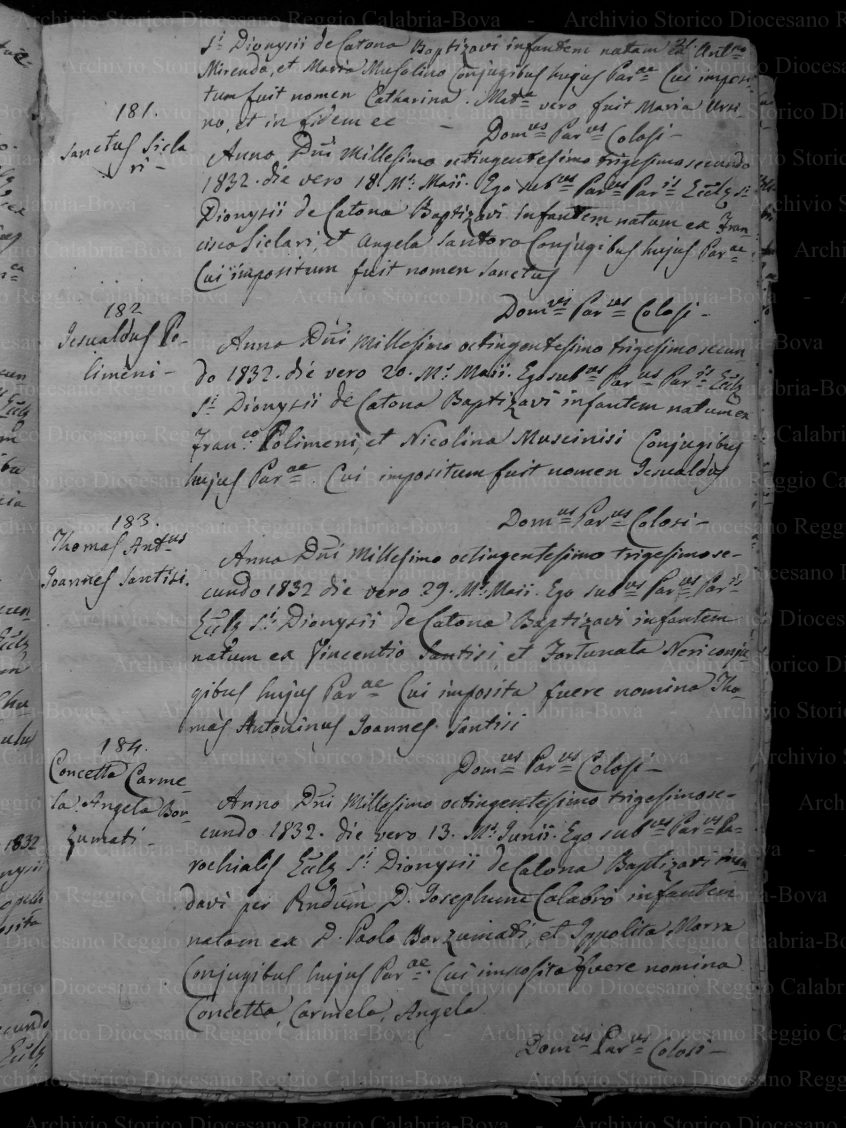 S.ti Dionysii de Catona Baptizavi infantem natam ex Ant.no
Mirenda, et Maria Musolino Conjugibus hujus Par.ae Cui imposi-
tum fuit nomen Catharina. Mat.a vero fuit Maria Ursi-
no, et in fidem ec —
Dom.cus Par.us Colosi —
181.
Sanctus Sicla
ri —
Anno Dñi Millesimo octingentesimo trigesimosecundo
1832. die vero 18. M.s Maii. Ego sub.us Par.us Par.is Eccłz S.ti
Dionysii de Catona Baptizavi Infantem natum ex Fran
cisco Siclari, et Angela Santoro Conjugibus hujus Par.ae
Cui impositum fuit nomen Sanctus
Dom.cus Par.us Colosi —
182
Jesualdus Po-
limeni —
Anno Dñi Millesimo octingentesimo trigesimosecun
do 1832. die vero 20. M.s Maii. Ego sub.us Par.us Par.is Eccłz
S.ti Dionysii de Catona Baptizavi infantem natum ex
Fran.co Polimeni, et Nicolina Muscinisi Conjugibus
hujus Par.ae. Cui impositum fuit nomen Jesualdus
Dom.cus Par.us Colosi —
183.
Thomas Ant.nus
Joannes Santisi.
Anno Dñi Millesimo octingentesimo trigesimose-
cundo 1832 die vero 29. M.s Maii. Ego sub.us Par.us Par.is
Eccłz S.ti Dionysii de Catona Baptizavi infantem
natum ex Vincentio Santisi, et Fortunata Neri conju
gibus hujus Par.ae Cui imposita fuere nomina Tho-
mas Antoninus Joannes Santisi
Dom.cus Par.us Colosi —
184.
Concetta Carme-
la. Angela Bor-
zumati —
Anno Dñi Millesimo octingentesimo trigesimose-
cundo 1832. die vero 13. M.s Junii. Ego sub.us Par.us Pa-
rochialis Eccłz S.ti Dionysii de Catona Baptizari man
davi per Rndum D. Josephum Calabrò infantem
natam ex D. Paolo Borzumati, et Ippolita Marra
Conjugibus hujus Par.ae. Cui imposita fuere nomina
Concetta, Carmela, Angela
Dom.cus Par.us Colosi —